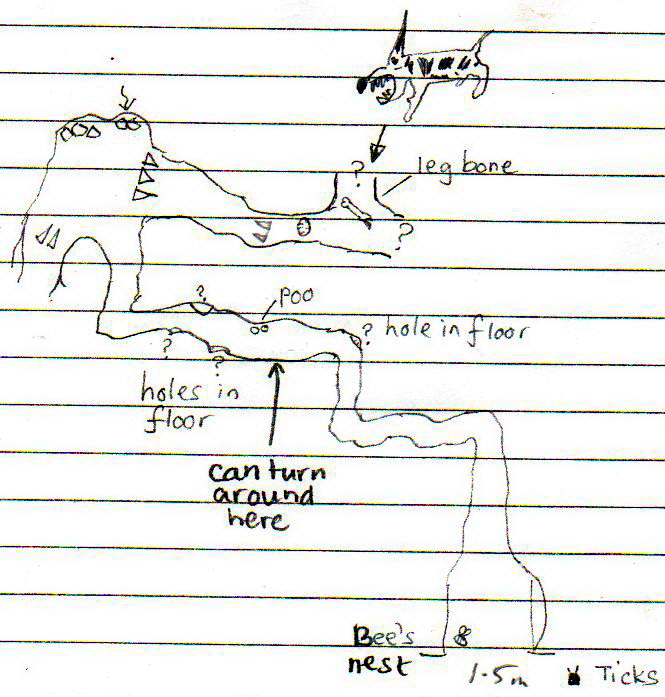 ?
leg bone
?
?
poo
? hole in floor
?
?
holes in
floor
can turn
around
here
Bee's
nest
1.5m
Ticks